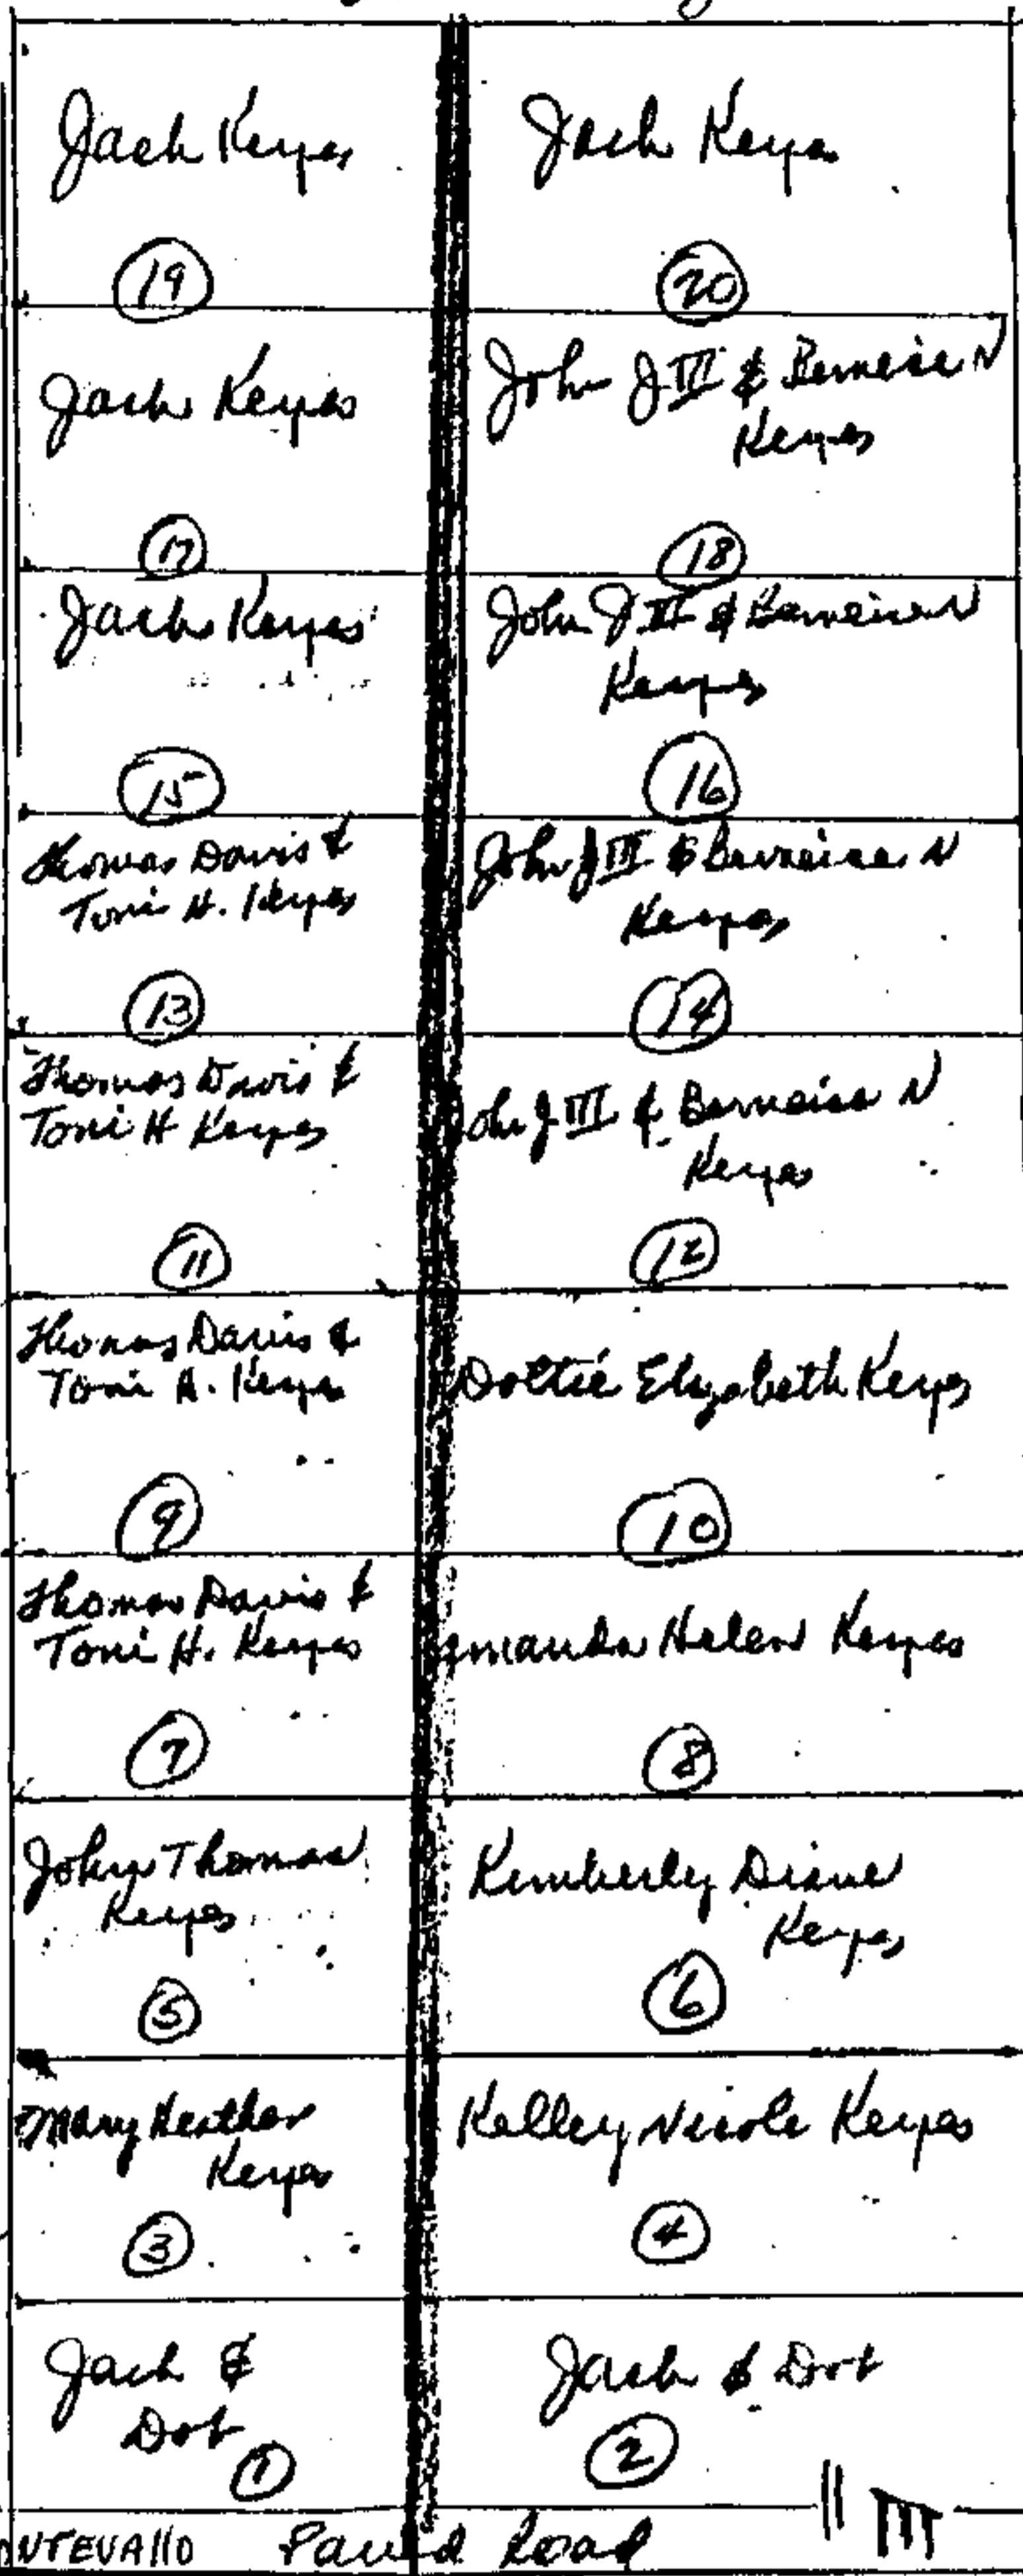 Jack Keyes
Jack Keyes
19
20
Jack Keyes
John J III & Berneice N
Keyes
17
18
Jack Keyes
John J III & Berneice N
Keyes
15
16
Thomas Davis &
Toni H. Keyes
John J III & Berneice N
Keyes
13
14
Thomas Davis &
Toni H Keyes
John J III & Berneice N
Keyes
11
12
Thomas Davis &
Toni H. Keyes
Dottie Elizabeth Keyes
9
10
Thomas Davis &
Toni H. Keyes
Amanda Helen Keyes
7
8
John Thomas
Keyes
Kimberly Diane
Keyes
5
6
Mary Heather
Keyes
Kelley Nicole Keyes
3
4
Jack &
Dot
1
Jack & Dot
2
Paved Road